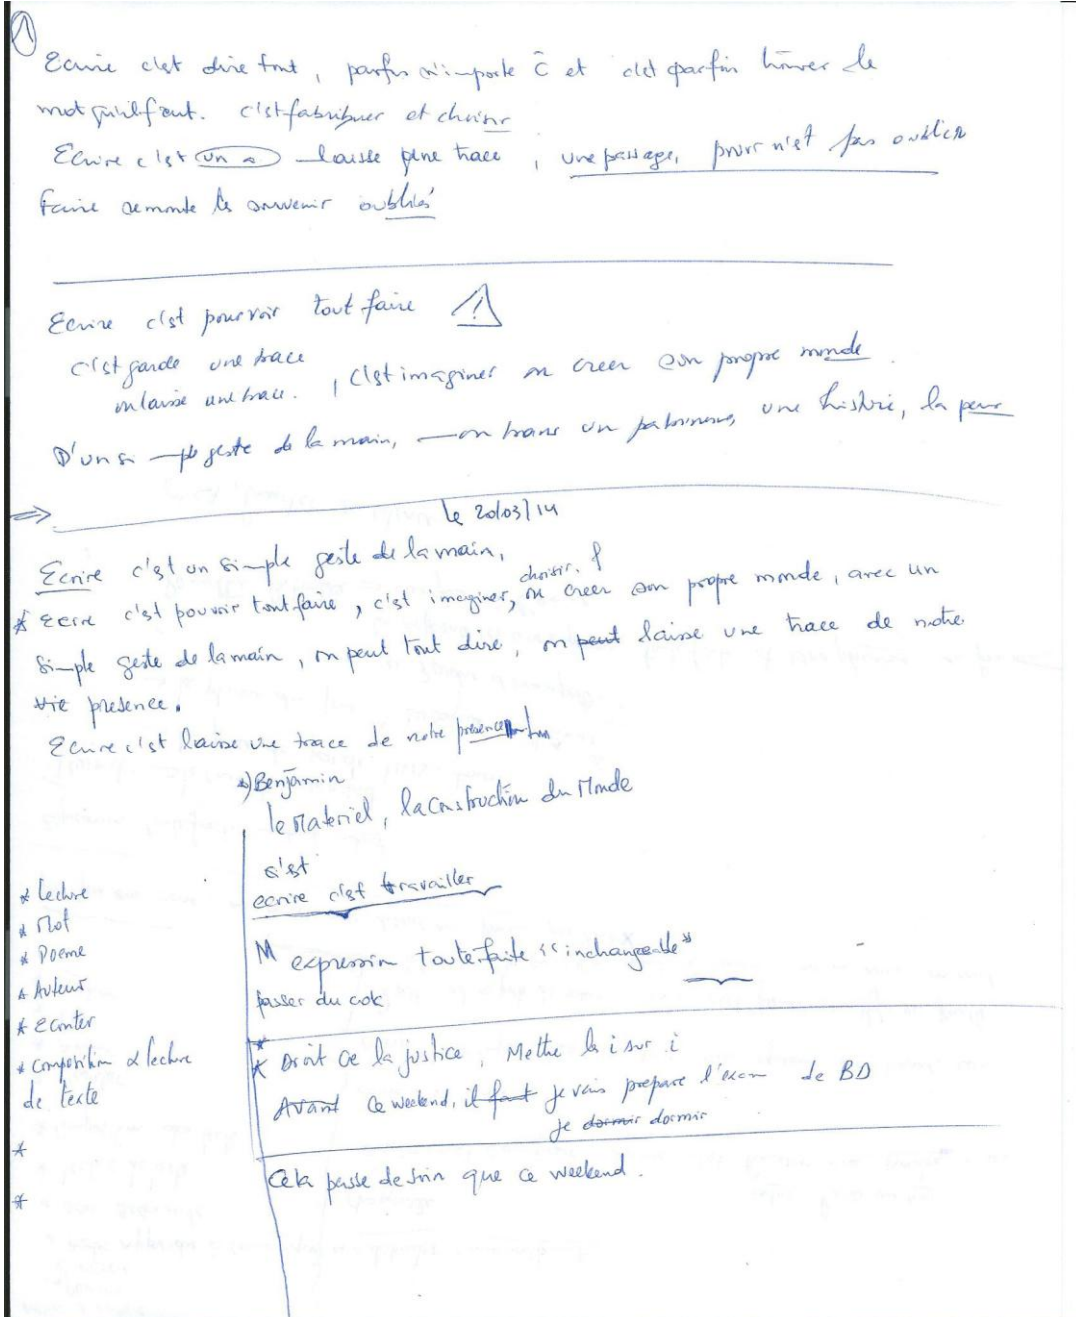 1
Ecrire c'est dire tout, parfois n'importe c̄ et c'est parfois trouver le
mot qu'il faut. c'est fabriquer et choisir
Ecrire c'est un laisse une trace, une passage, pour n'est pas oublier
Faire remonte les souvenir oubliés
Ecrire c'est pourvoir tout faire !
c'est garde une trace
on laisse une trace. , c'est imaginer on creer son propre monde.
D'un si-ple geste de la main, on trans un patrimoine, une histoire, la peur
le 20/03/14
Ecrire c'est un simple geste de la main,
choisir.
* Ecrire c'est pouvoir tout faire, c'est imaginer, ou creer son propre monde, avec un
simple geste de la main, on peut tout dire, on peut laisse une trace de notre
vie presence.
Ecrire c'est laisse une trace de notre presence
*) Benjamin
le Materiel, la construction du Monde
c'est
ecrire c'est travailler
M expression toute faite "inchangeable"
passer du cok
* Droit ce la justice, Mettre le i sur i
Avant ce weekend, il faut je vais prepare l'exam de BD
je dormir dormir
Cela passe de soin que ce weekend.
* Lecture
* Mot
* Poeme
* Auteur
* Ecouter
* composition & lecture
de texte
*
*